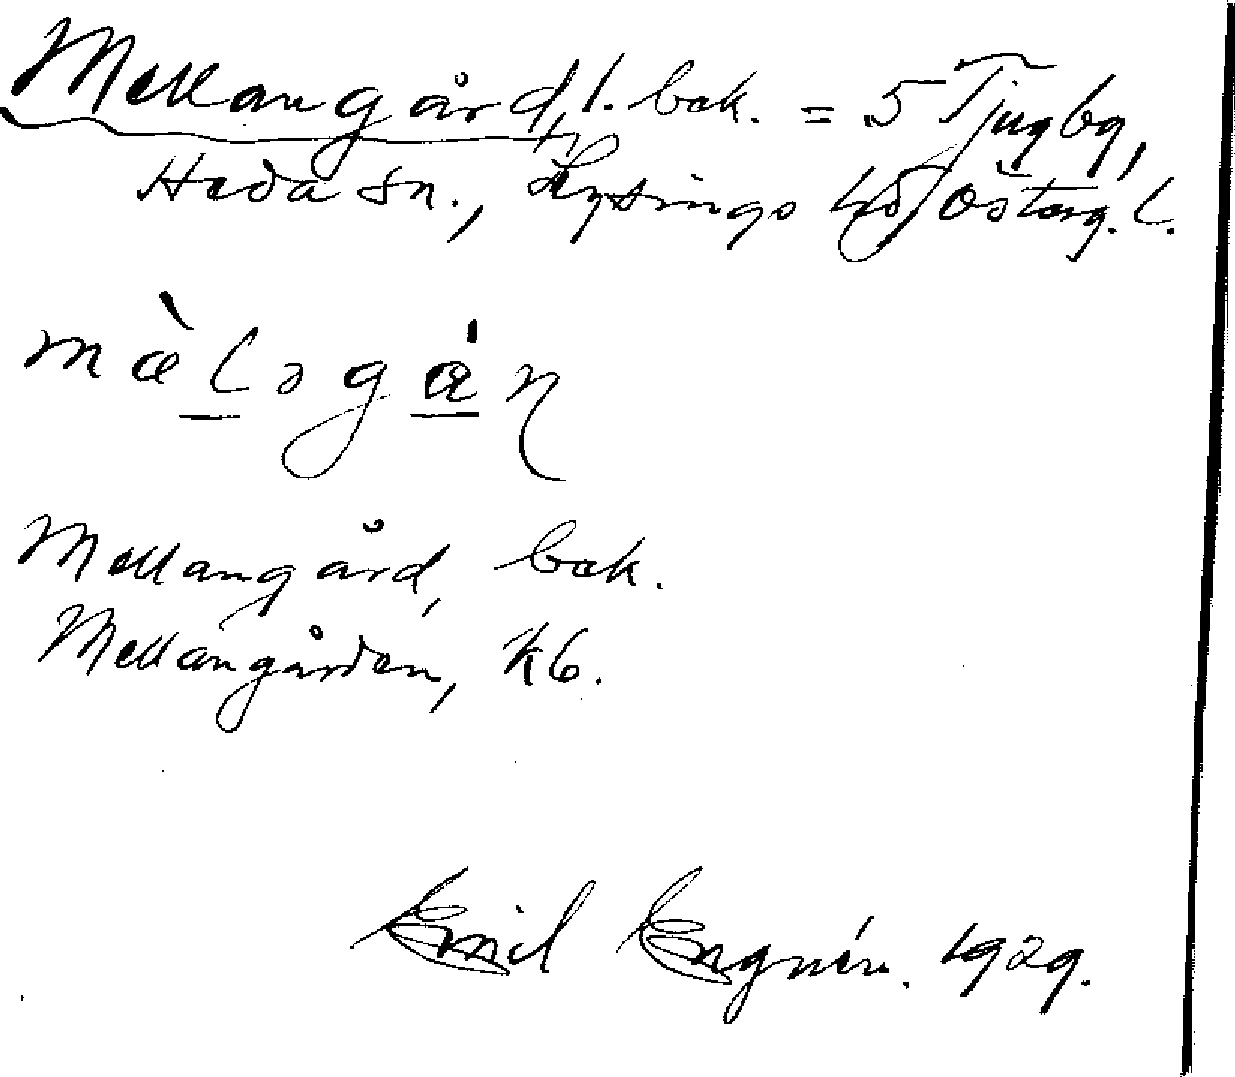 Mellangård, l. bok. = 5 Tjugby,
Heda sn., Lysings hd, Österg. l.
mæ̀lǝgán
Mellangård, bok.
Mellangården, k6.
Emil Engnér. 1929.